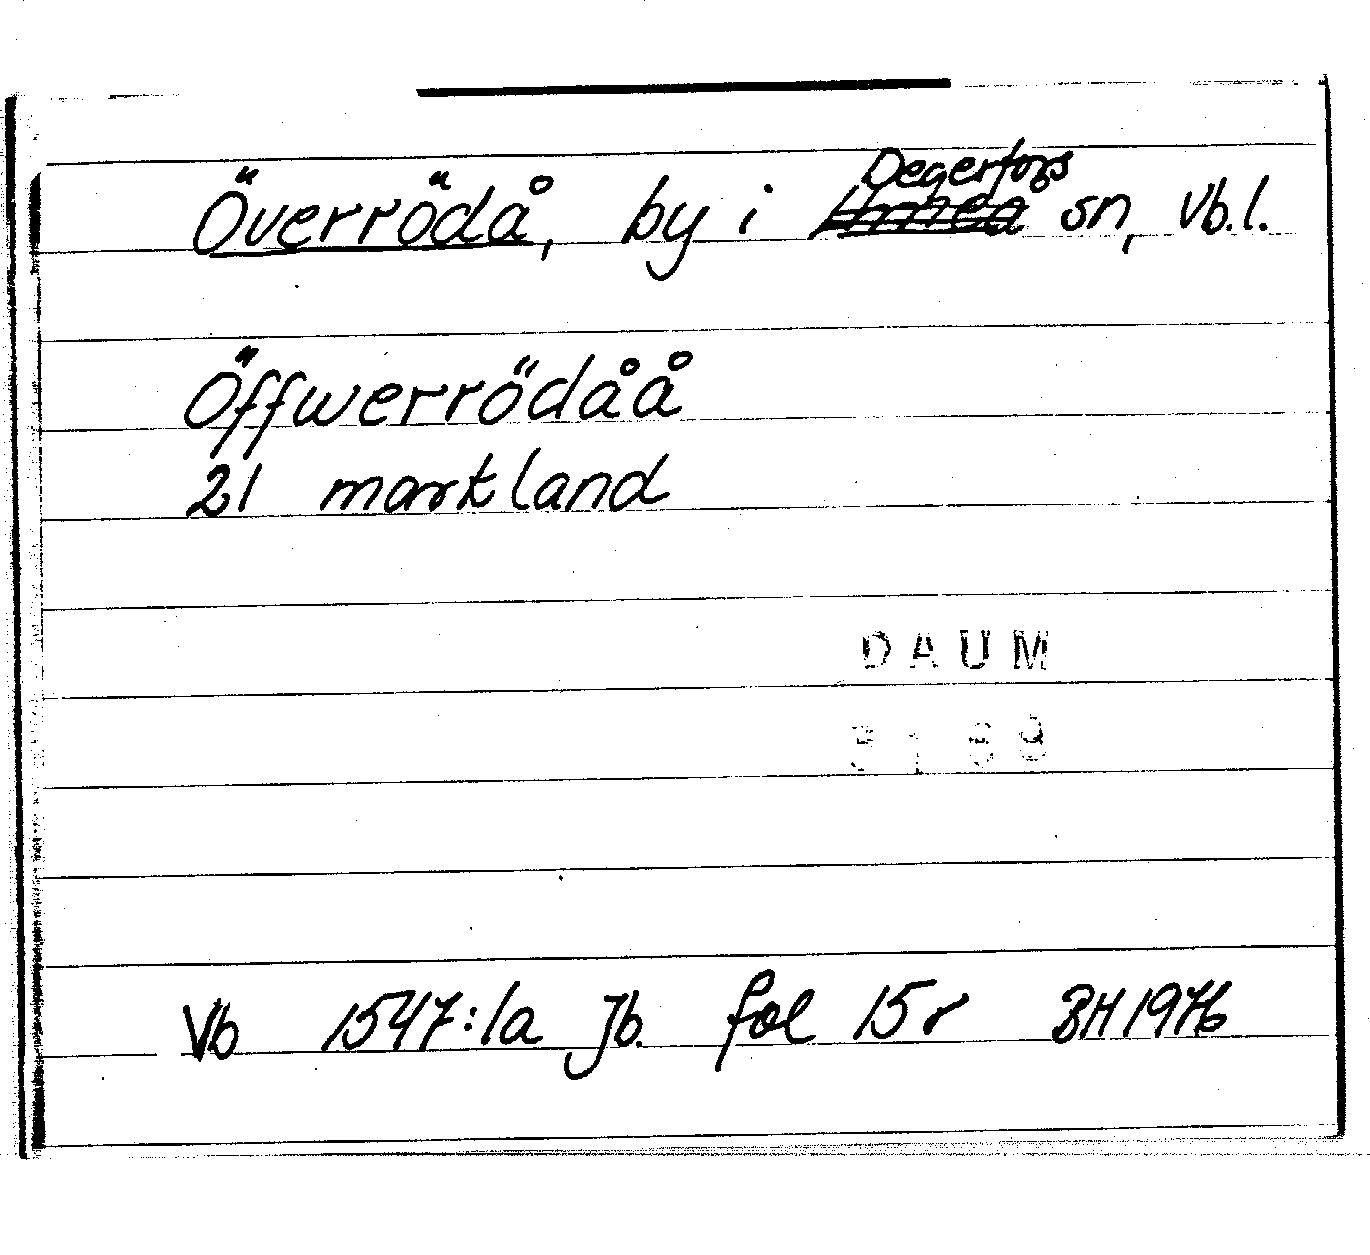 Degerfors
Överrödå, by i Umeå sn, Vb.l.
Öffwerrödåå
21 markland
DAUM
Vb 1547:1a Jb. fol 15r BH 1976